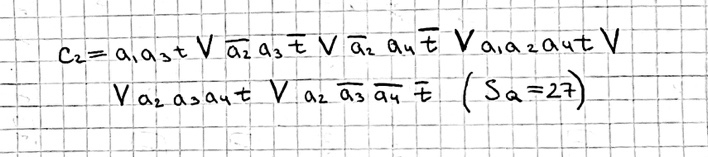 c₂ = a₁a₃t ∨ a̅₂ a₃ t̅ ∨ a̅₂ a₄ t̅ ∨ a₁a₂a₄t ∨
∨ a₂a₃a₄t ∨ a₂ a̅₃ a̅₄ t̅ (S_Q=27)